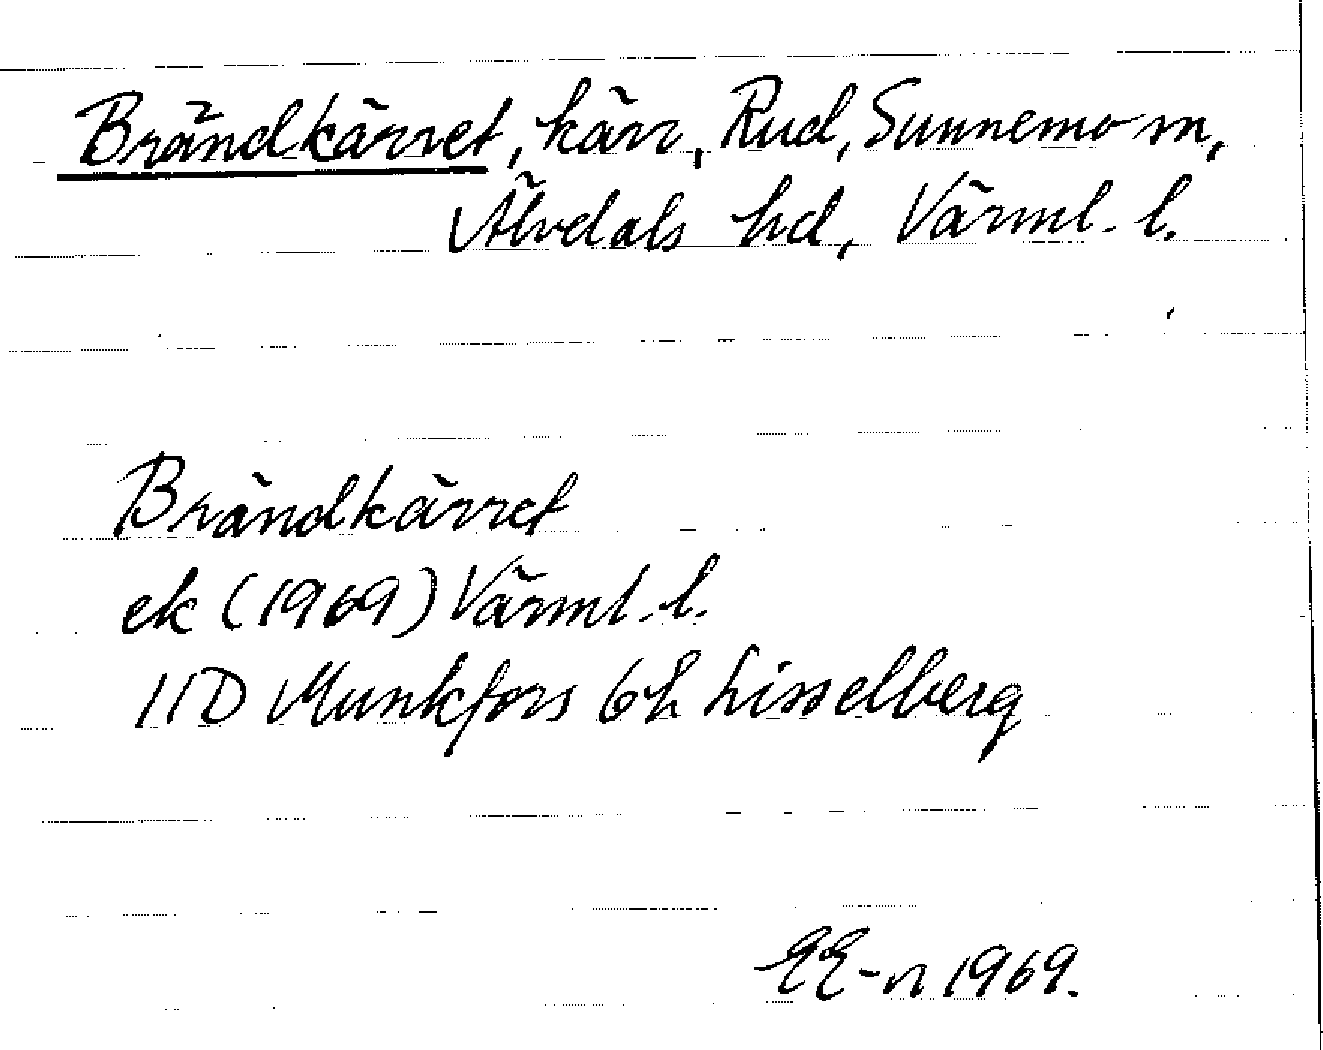 Brändkärret, kärr, Rud, Sunnemo sn,
Älvdals hd, Värml. l.
Brändkärret
ek (1969) Värml. l.
11D Munkfors 6h Lisselberg
EE-n 1969.